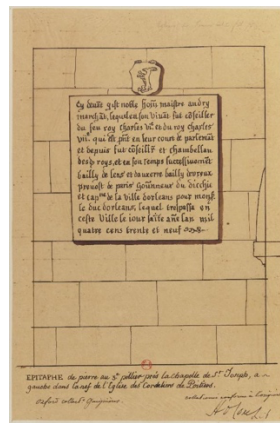 Cy devāt gist noble hōme maistre andry
marchāt, lequel en son vivāt fut cōseiller
du feu roy charles vi.e et du roy charles
vii.e qui est en leur court de parlemēt
et depuis fut cōseillr et chambellan
desd. roys, et en son temps successivemēt
bailly de sens et dauxerre bailly devreux
prevost de paris gouverneur du duchie
et capne de la ville dorleans pour monsr
le duc dorleans, lequel trespassa en
ceste Ville le jour faite ans lan mil
quatre cens trente et neuf
EPITAPHE de pierre au 3e pillier près la chapelle de St Joseph, a
gauche dans la nef de l'Eglise des Cordeliers de Poitiers.
Oxford collectn Gaignières.